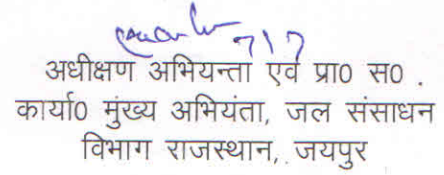 7/7
अधीक्षण अभियन्ता एवं प्रा0 स0 .
कार्या0 मुंख्य अभियंता, जल संसाधन
विभाग राजस्थान, जयपुर